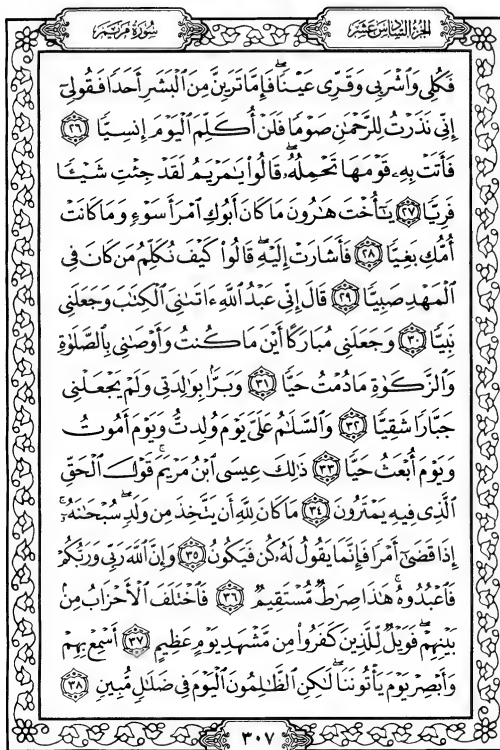 الجزء السادس عشر
سورة مريم
فَكُلِى وَٱشْرَبِى وَقَرِّى عَيْنًا ۖ فَإِمَّا تَرَيِنَّ مِنَ ٱلْبَشَرِ أَحَدًا فَقُولِىٓ
إِنِّى نَذَرْتُ لِلرَّحْمَٰنِ صَوْمًا فَلَنْ أُكَلِّمَ ٱلْيَوْمَ إِنسِيًّا ٢٦
فَأَتَتْ بِهِۦ قَوْمَهَا تَحْمِلُهُۥ ۖ قَالُوا۟ يَٰمَرْيَمُ لَقَدْ جِئْتِ شَيْـًٔا
فَرِيًّا ٢٧ يَٰٓأُخْتَ هَٰرُونَ مَا كَانَ أَبُوكِ ٱمْرَأَ سَوْءٍ وَمَا كَانَتْ
أُمُّكِ بَغِيًّا ٢٨ فَأَشَارَتْ إِلَيْهِ ۖ قَالُوا۟ كَيْفَ نُكَلِّمُ مَن كَانَ فِى
ٱلْمَهْدِ صَبِيًّا ٢٩ قَالَ إِنِّى عَبْدُ ٱللَّهِ ءَاتَىٰنِىَ ٱلْكِتَٰبَ وَجَعَلَنِى
نَبِيًّا ٣٠ وَجَعَلَنِى مُبَارَكًا أَيْنَ مَا كُنتُ وَأَوْصَٰنِى بِٱلصَّلَوٰةِ
وَٱلزَّكَوٰةِ مَا دُمْتُ حَيًّا ٣١ وَبَرًّۢا بِوَٰلِدَتِى وَلَمْ يَجْعَلْنِى
جَبَّارًا شَقِيًّا ٣٢ وَٱلسَّلَٰمُ عَلَىَّ يَوْمَ وُلِدتُّ وَيَوْمَ أَمُوتُ
وَيَوْمَ أُبْعَثُ حَيًّا ٣٣ ذَٰلِكَ عِيسَى ٱبْنُ مَرْيَمَ ۚ قَوْلَ ٱلْحَقِّ
ٱلَّذِى فِيهِ يَمْتَرُونَ ٣٤ مَا كَانَ لِلَّهِ أَن يَتَّخِذَ مِن وَلَدٍ ۖ سُبْحَٰنَهُۥٓ ۚ
إِذَا قَضَىٰٓ أَمْرًا فَإِنَّمَا يَقُولُ لَهُۥ كُن فَيَكُونُ ٣٥ وَإِنَّ ٱللَّهَ رَبِّى وَرَبُّكُمْ
فَٱعْبُدُوهُ ۚ هَٰذَا صِرَٰطٌ مُّسْتَقِيمٌ ٣٦ فَٱخْتَلَفَ ٱلْأَحْزَابُ مِنۢ
بَيْنِهِمْ ۖ فَوَيْلٌ لِّلَّذِينَ كَفَرُوا۟ مِن مَّشْهَدِ يَوْمٍ عَظِيمٍ ٣٧ أَسْمِعْ بِهِمْ
وَأَبْصِرْ يَوْمَ يَأْتُونَنَا ۖ لَٰكِنِ ٱلظَّٰلِمُونَ ٱلْيَوْمَ فِى ضَلَٰلٍ مُّبِينٍ ٣٨
٣٠٧